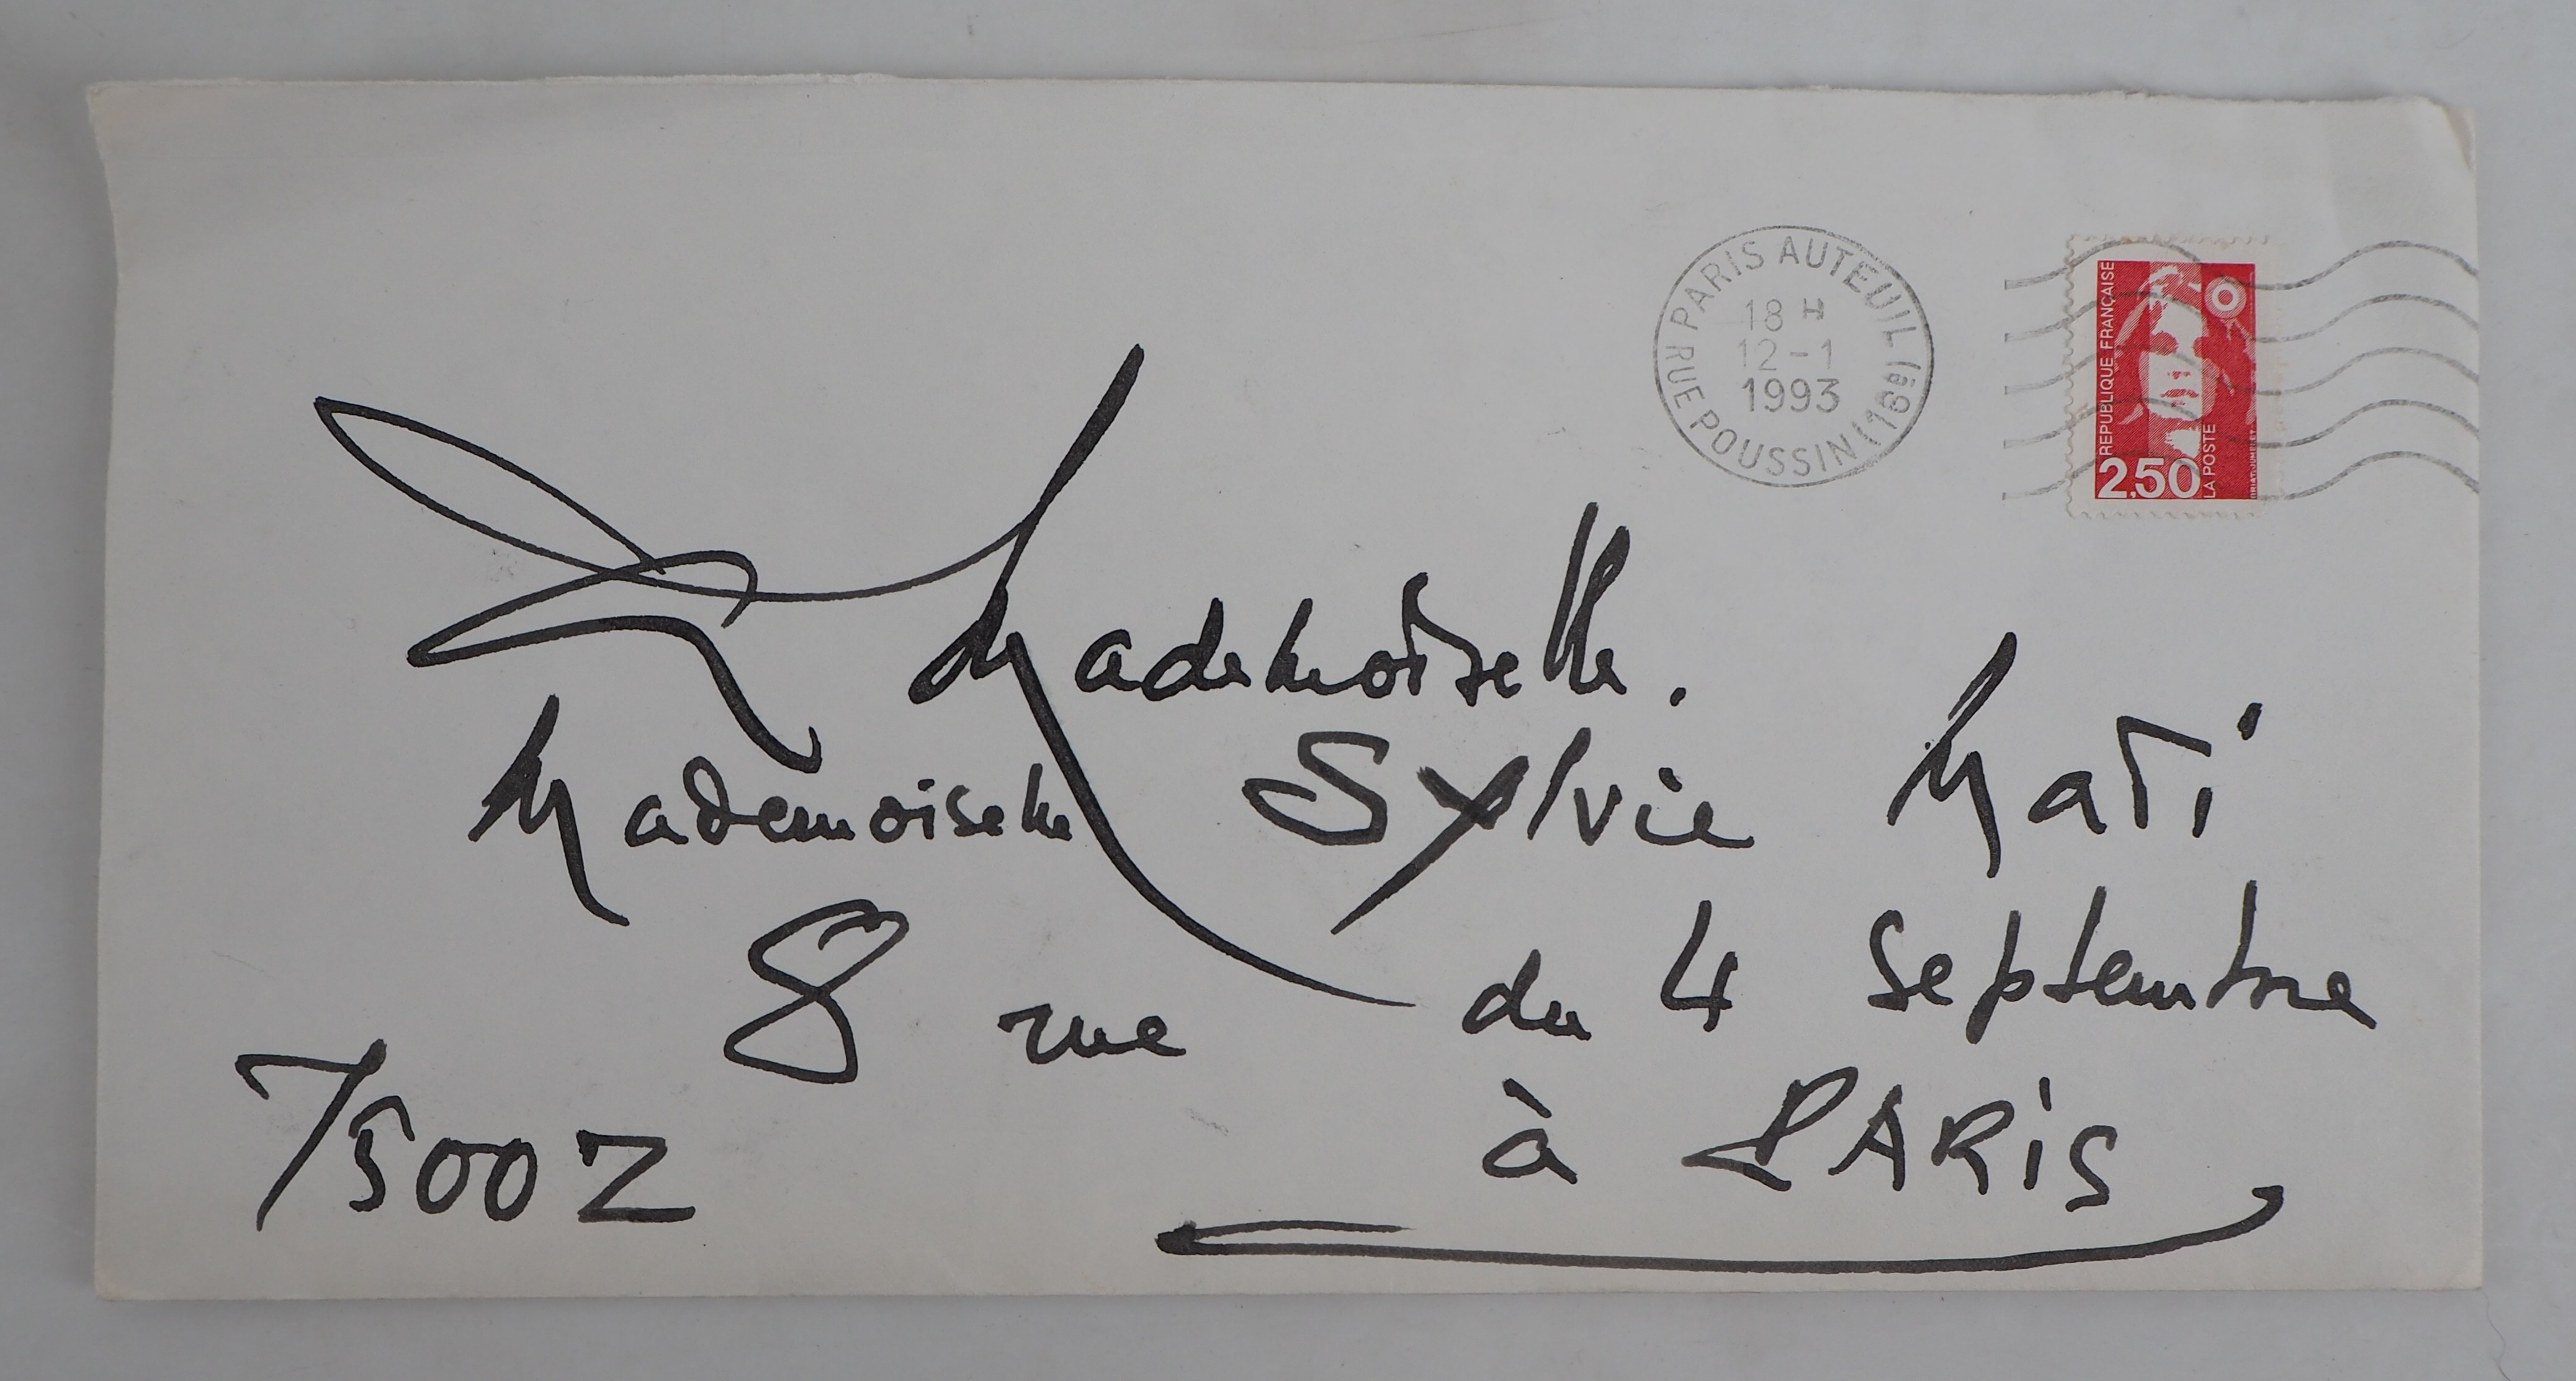 PARIS AUTEUIL (16e)
RUE POUSSIN
18 H
12-1
1993
REPUBLIQUE FRANÇAISE
2,50
LA POSTE
Mademoiselle.
Mademoiselle Sylvie Mati
8 rue du 4 Septembre
75002 à PARIS